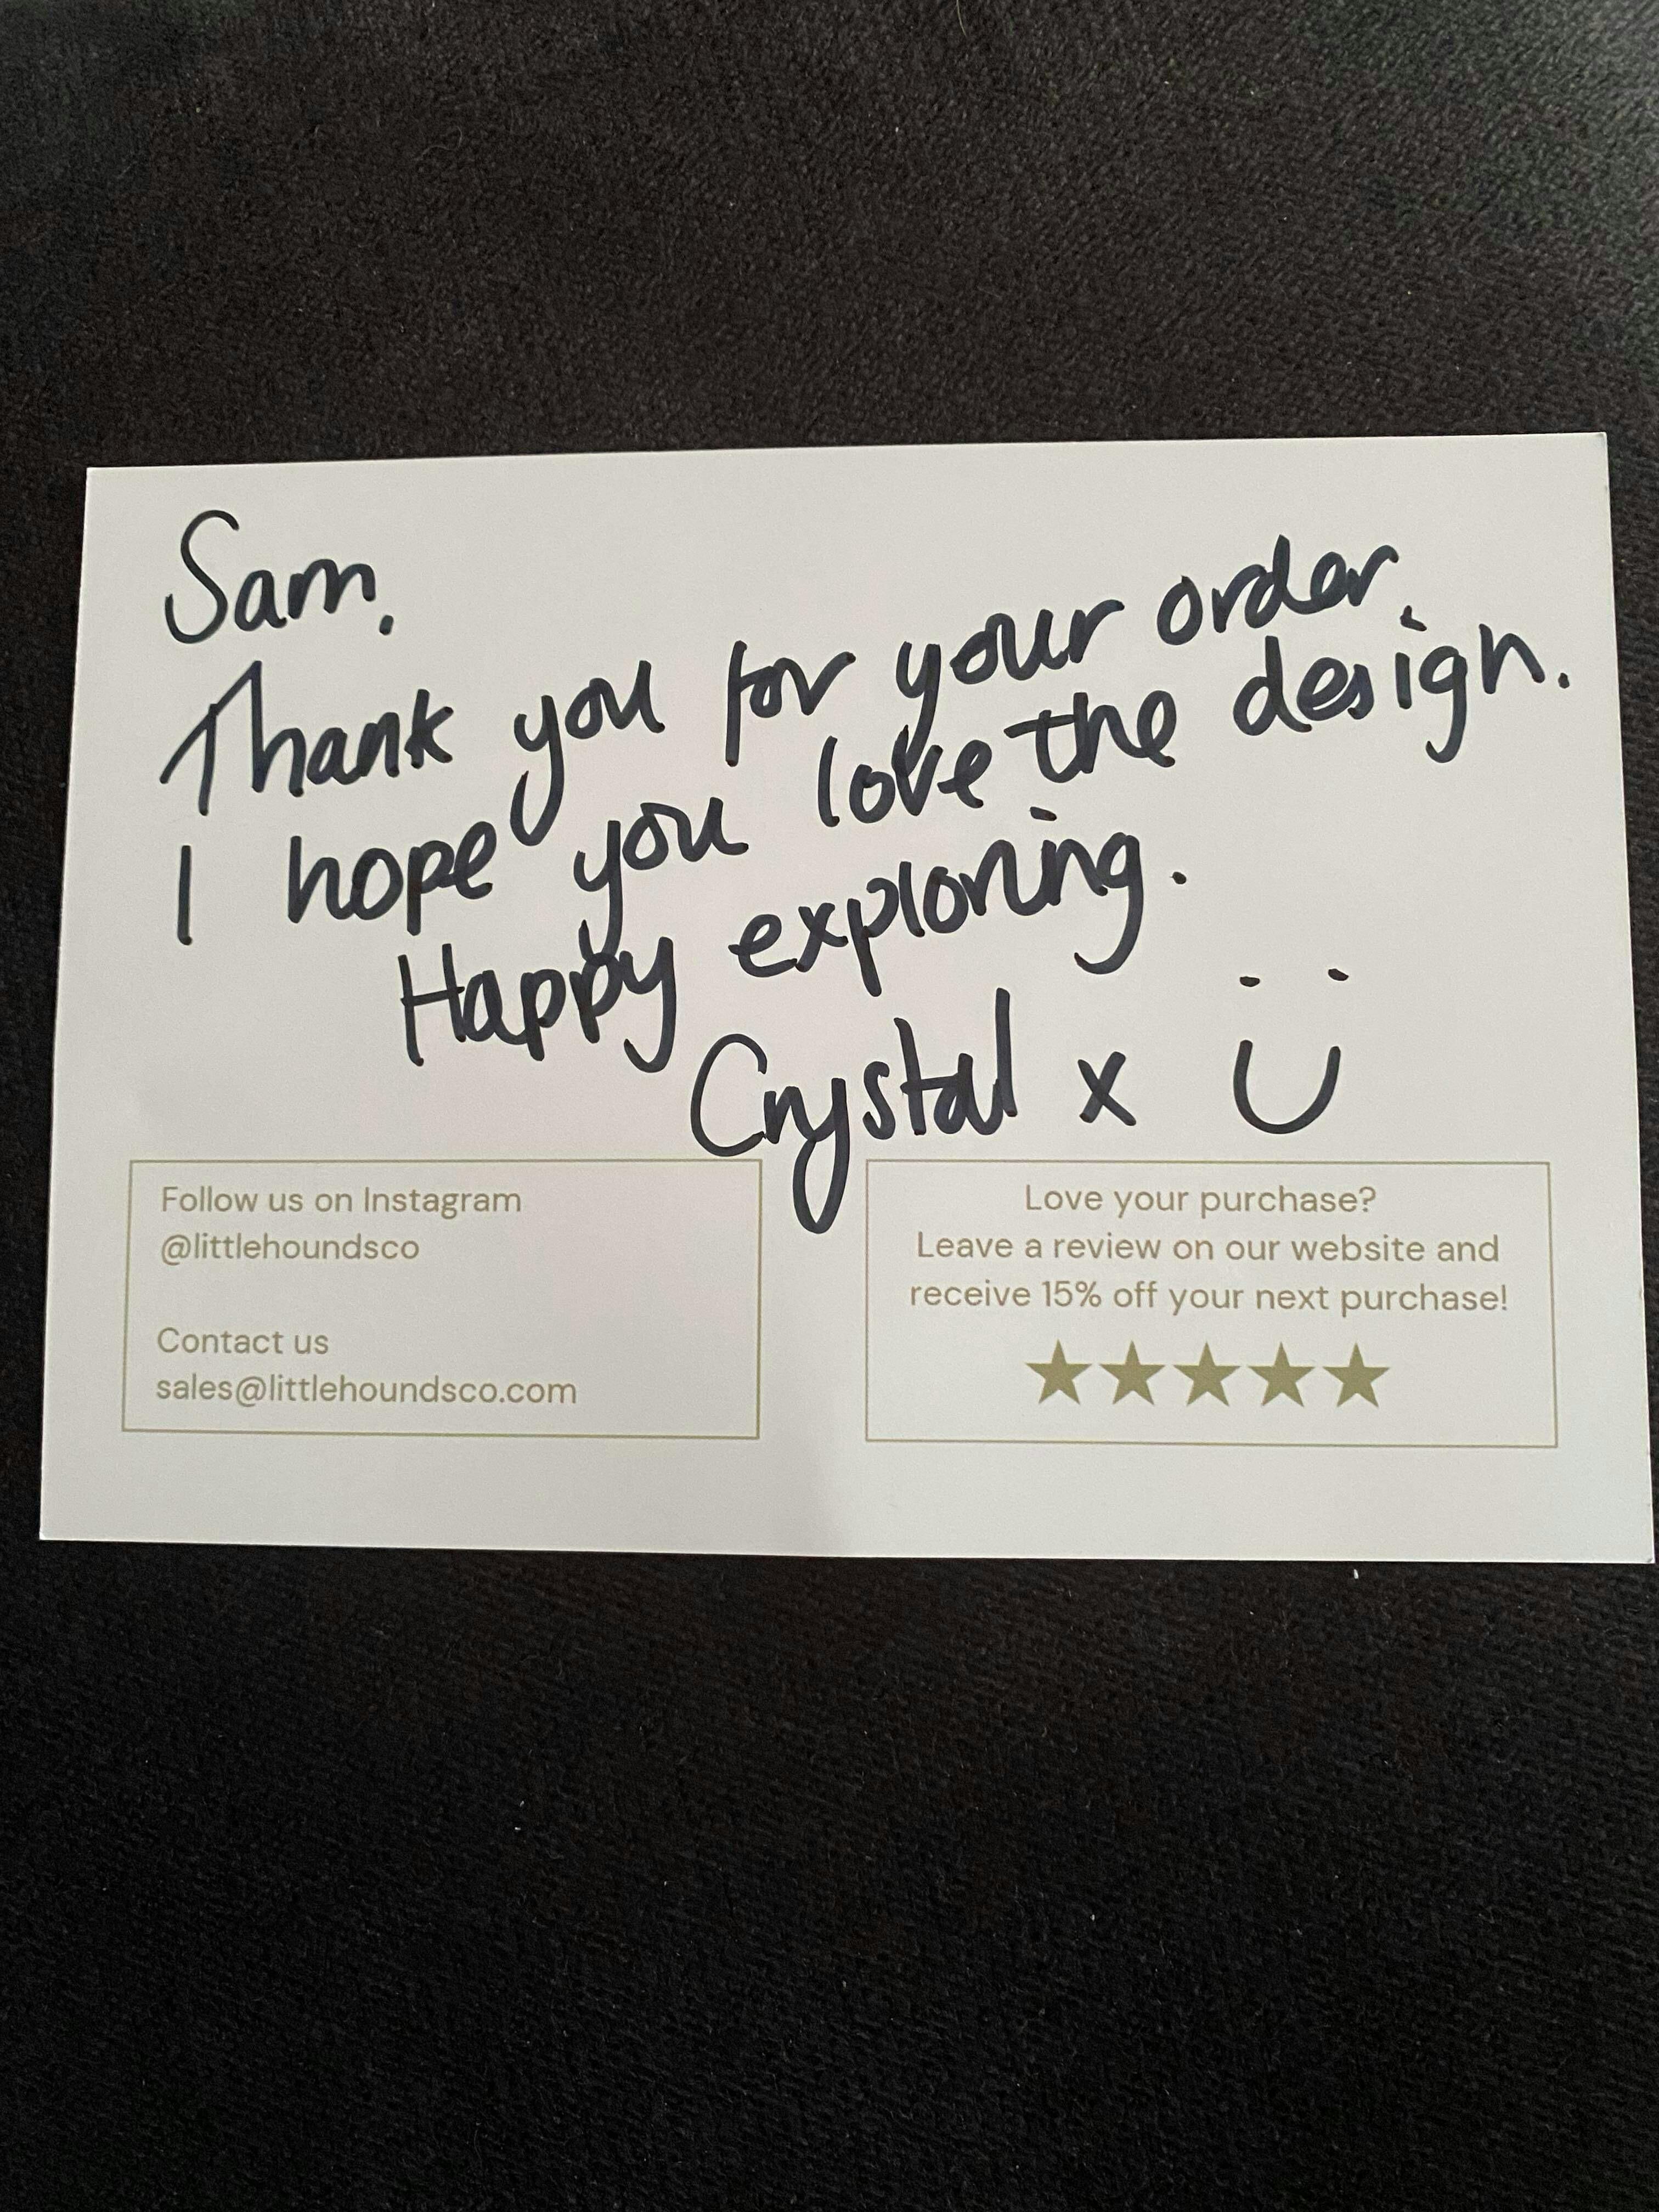 Sam.
Thank you for your order.
I hope you love the design.
Happy exploring.
Crystal x
Follow us on Instagram
@littlehoundsco
Contact us
sales@littlehoundsco.com
Love your purchase?
Leave a review on our website and
receive 15% off your next purchase!